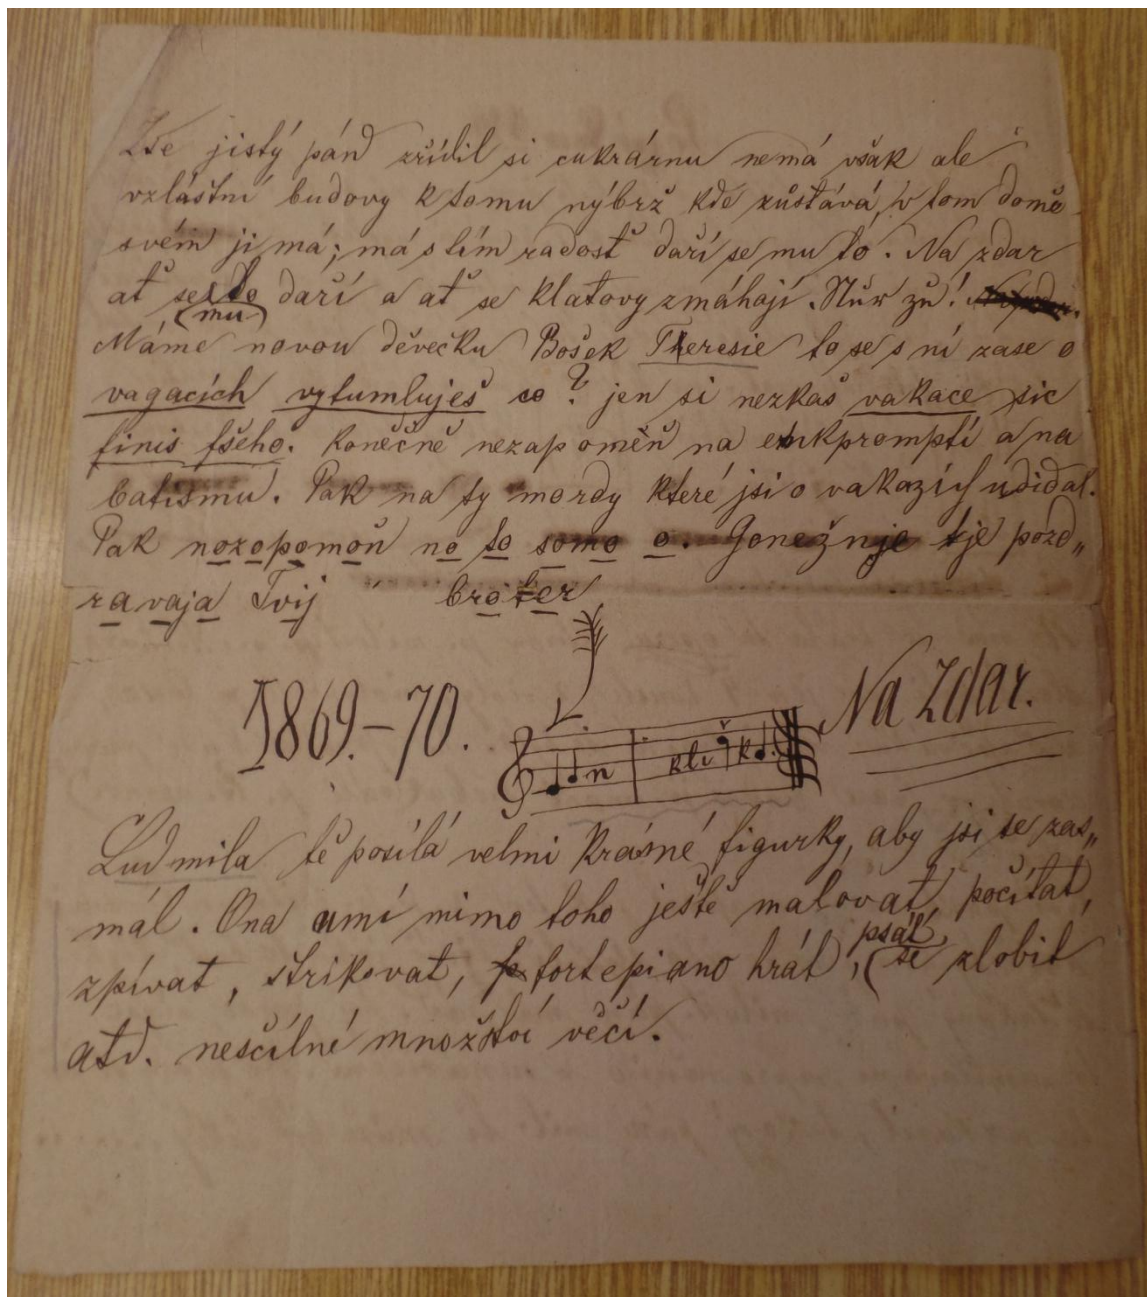 Zde jistý pán zřídil si cukrárnu nemá však ale
vzláštní budovy k tomu nýbrž kde zůstává, v tom domě
svém ji má; má s tím radost daří se mu to. Na zdar
ať se to daří a ať se Klatovy zmáhají. Nur zu!
(mu)
Máme novou děvečku Bošek Theresie to se s ní zase o
vagacích vytumluješ co? jen si nezkaš vakace sic
finis všeho. Konečně nezapomeň na enkprompti a na
batismu. Pak na ty mordy které jsi o vakazích udidal.
Pak nozopomoň no to somo o. Gonežnje tje pozd„
ravaja Tvij broter
1869.–70.
n kli k
Na Zdar.
Ludmila tě posílá velmi krásné figurky, aby jsi se zas„
mál. Ona umí mimo toho ještě malovat, počítat,
psát,
zpívat, štrikovat, fortepiano hrát, (se zlobit
atd. nesčílné množství věcí.